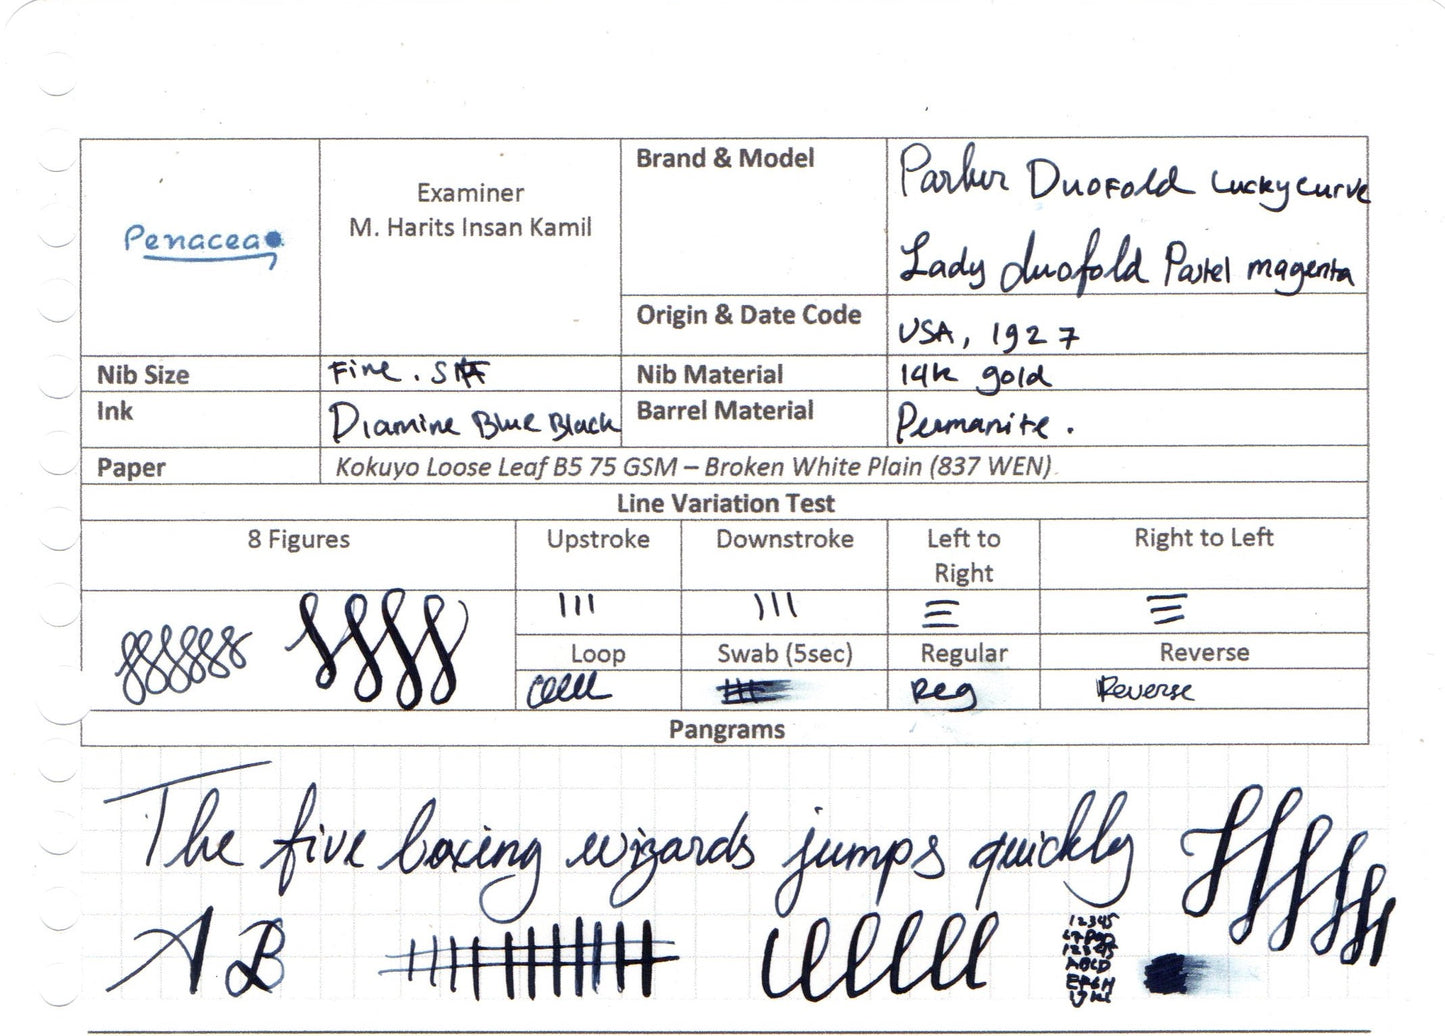 Penacea
Examiner
M. Harits Insan Kamil
Brand & Model
Parker Duofold Lucky curve
Lady duofold Pastel magenta
Origin & Date Code
USA, 1927
Nib Size
Fine.
Nib Material
14k gold
Ink
Diamine Blue Black
Barrel Material
Permanite.
Paper
Kokuyo Loose Leaf B5 75 GSM – Broken White Plain (837 WEN)
Line Variation Test
8 Figures
Upstroke
Downstroke
Left to
Right
Right to Left
Loop
Swab (5sec)
Regular
Reverse
Reg
Reverse
Pangrams
The five boxing wizards jumps quickly
A B
12345
12345
ABCD
EFGH